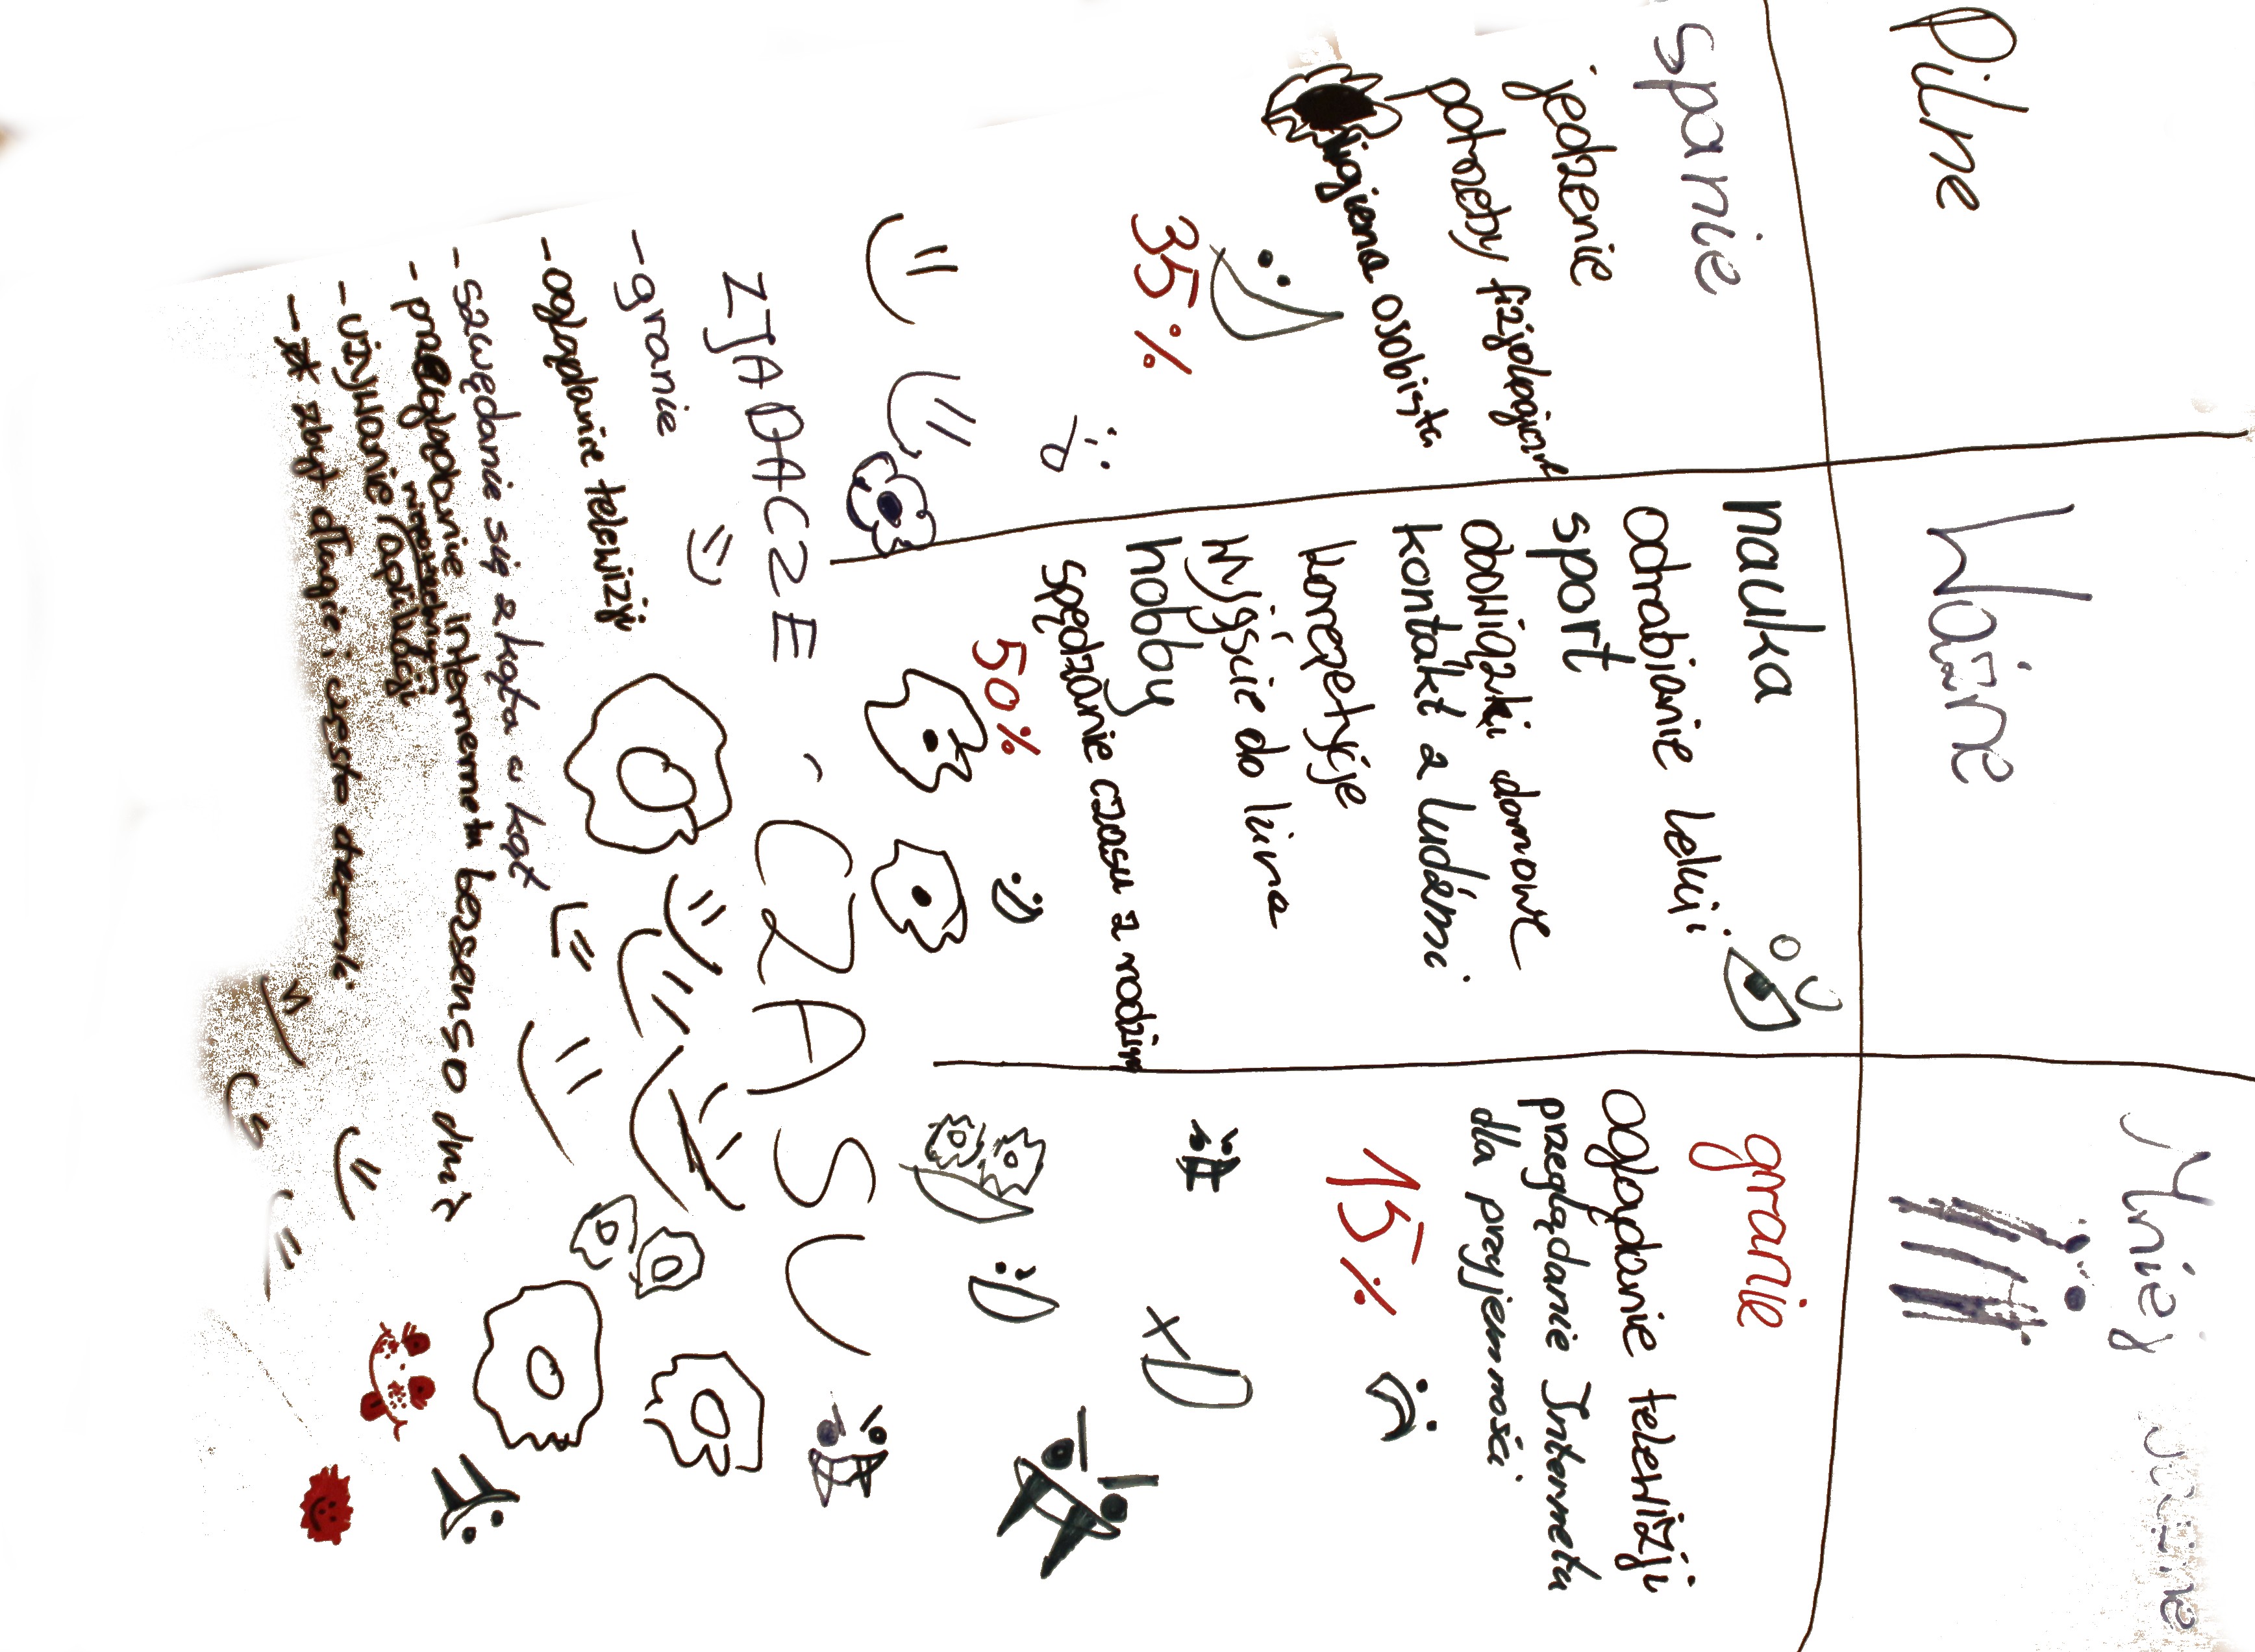 Pilne
Ważne
Mniej ważne
spanie
jedzenie
potrzeby fizjologiczne
higiena osobista
35%
nauka
odrabianie lekcji
sport
obowiązki domowe
kontakt z ludźmi
korepetycje
wyjście do kina
hobby
spędzanie czasu z rodziną
50%
granie
oglądanie telewizji
przeglądanie Internetu
dla przyjemności
15%
xD
ZJADACZE CZASU
-granie
-oglądanie telewizji
-szwędanie się z kąta w kąt
-przeglądanie internetu bezsensownie
-używanie aplikacji
- zbyt długie i częste drzemki